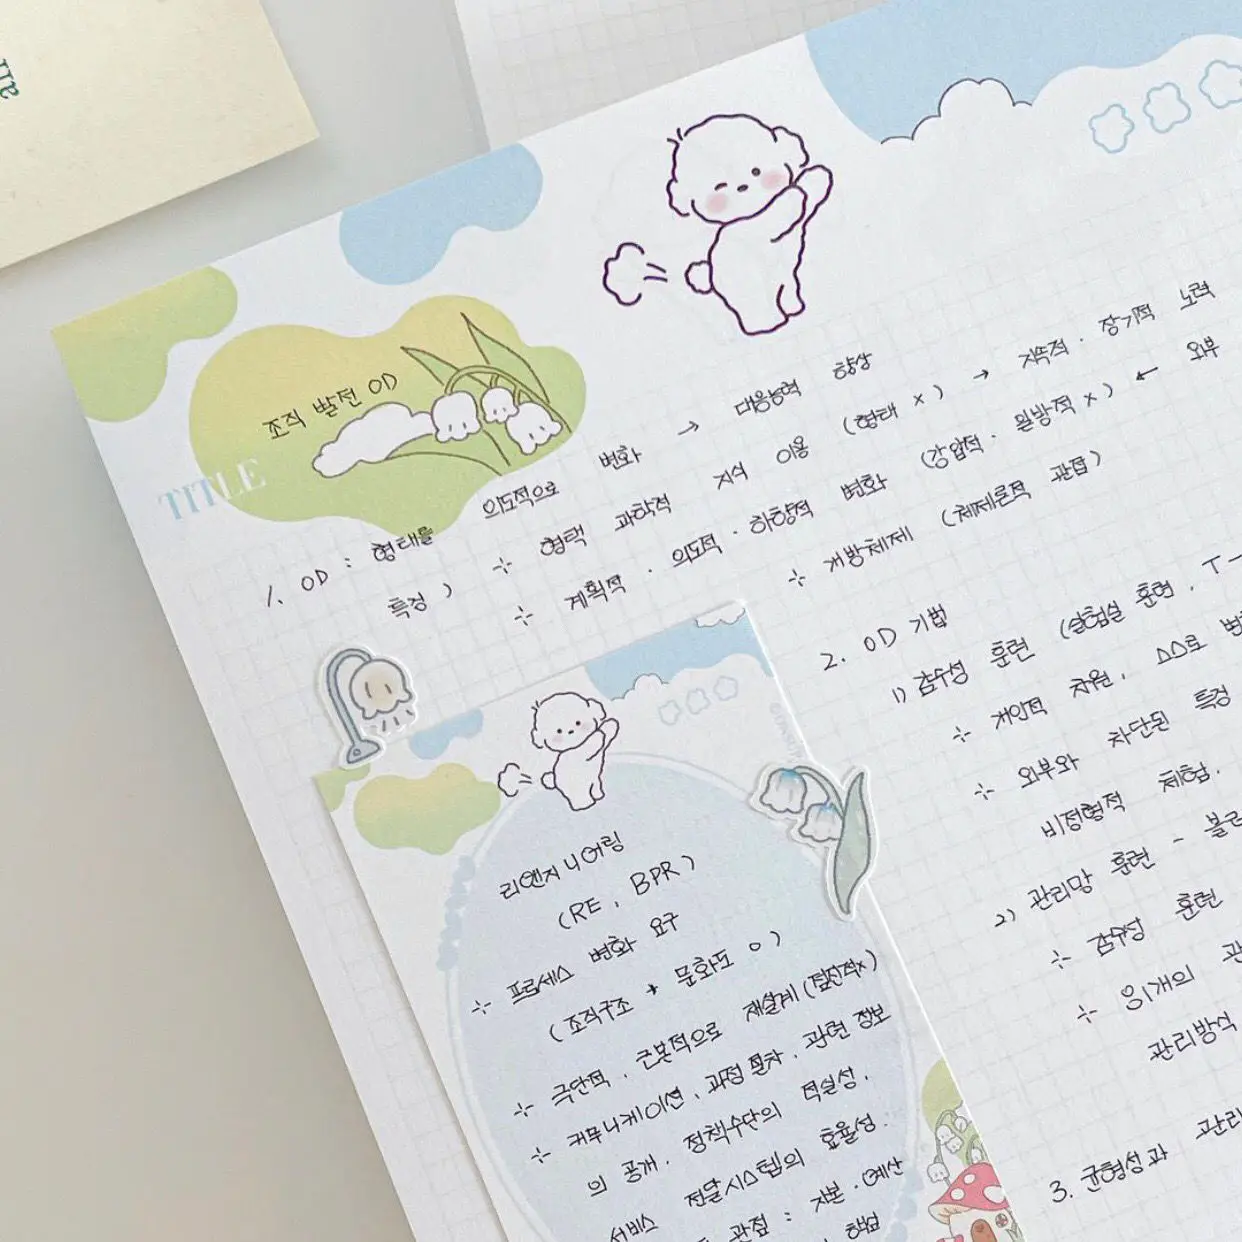 조직 발전 OD
TITLE
1. OD : 형태를 의도적으로 변화 → 대응능력 향상
특징 ) ⊹ 행태 과학적 지식 이용 (형태 x) → 지속적 · 장기적 노력
⊹ 계획적 · 의도적 · 하향적 변화 (강압적 · 일방적 x) ← 외부
⊹ 개방체제 (체제론적 관점)
2. OD 기법
1) 감수성 훈련 (실험실 훈련, T-
⊹ 개인적 차원,
⊹ 외부와 차단된
비정형적 체험.
2) 관리망 훈련 -
⊹ 감수성 훈련
⊹ 81개의
관리방식
3. 균형성과 관리
리엔지니어링
(RE, BPR)
⊹ 프로세스 변화 요구
(조직구조 + 문화도 o)
⊹ 극단적 · 근본적으로 재설계 (점진적x)
⊹ 커뮤니케이션, 과정 절차 · 관련 정보
의 공개, 정책수단의 적실성,
서비스 전달시스템의 효율성.
관점 : 자본 · 예산